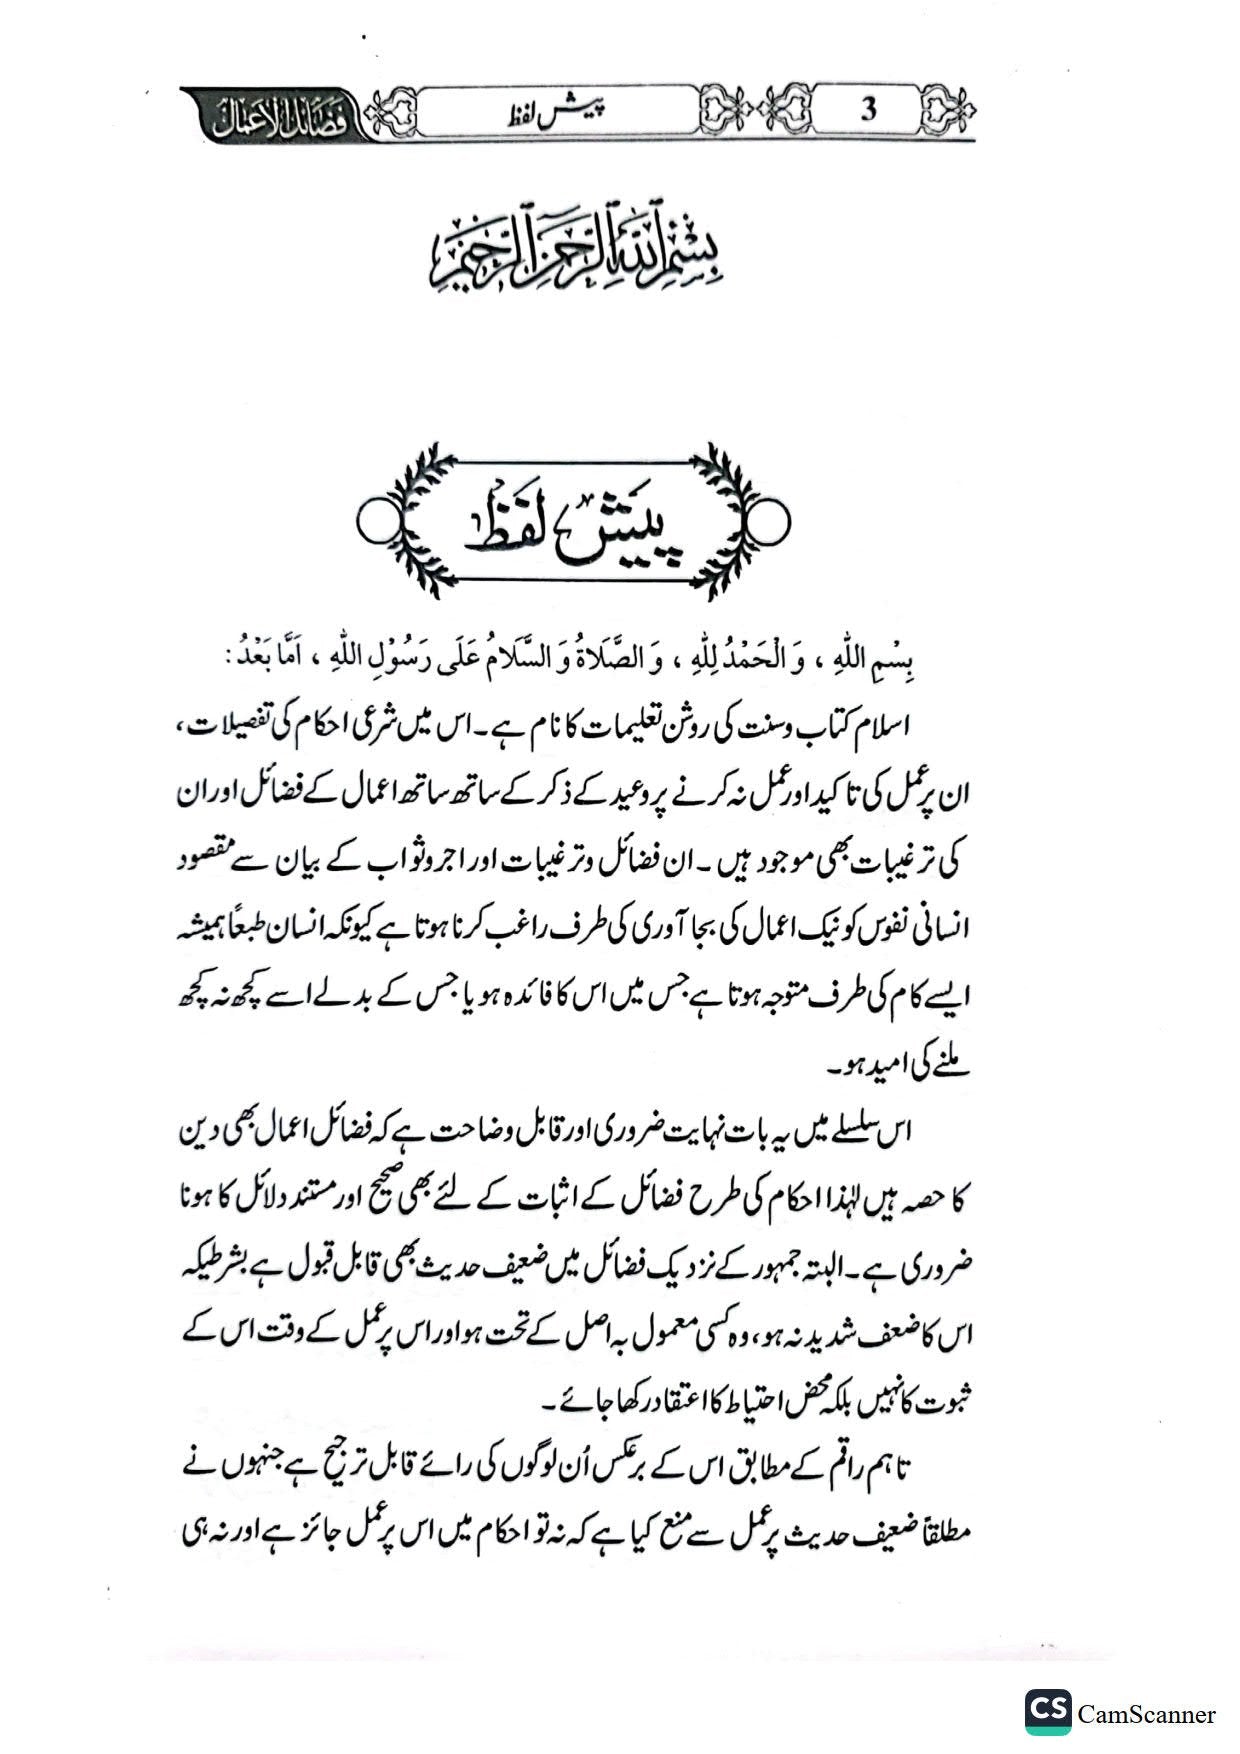 3
پیش لفظ
فضائل الاعمال
بسم الله الرحمن الرحيم
پیش لفظ
بِسْمِ اللهِ ، وَ الْحَمْدُ لِلّٰهِ ، وَ الصَّلَاةُ وَ السَّلَامُ عَلَى رَسُوْلِ اللهِ ، اَمَّا بَعْدُ :
اسلام کتاب وسنت کی روشن تعلیمات کا نام ہے۔ اس میں شرعی احکام کی تفصیلات،
ان پر عمل کی تاکید اور عمل نہ کرنے پر وعید کے ذکر کے ساتھ ساتھ اعمال کے فضائل اور ان
کی ترغیبات بھی موجود ہیں ۔ ان فضائل وترغیبات اور اجر وثواب کے بیان سے مقصود
انسانی نفوس کو نیک اعمال کی بجا آوری کی طرف راغب کرنا ہوتا ہے کیونکہ انسان طبعًا ہمیشہ
ایسے کام کی طرف متوجہ ہوتا ہے جس میں اس کا فائدہ ہو یا جس کے بدلے اسے کچھ نہ کچھ
ملنے کی امید ہو ۔
اس سلسلے میں یہ بات نہایت ضروری اور قابل وضاحت ہے کہ فضائل اعمال بھی دین
کا حصہ ہیں لہٰذا احکام کی طرح فضائل کے اثبات کے لئے بھی صحیح اور مستند دلائل کا ہونا
ضروری ہے۔ البتہ جمہور کے نزدیک فضائل میں ضعیف حدیث بھی قابل قبول ہے بشرطیکہ
اس کا ضعف شدید نہ ہو، وہ کسی معمول بہ اصل کے تحت ہو اور اس پر عمل کے وقت اس کے
ثبوت کا نہیں بلکہ محض احتیاط کا اعتقاد رکھا جائے ۔
تاہم راقم کے مطابق اس کے برعکس اُن لوگوں کی رائے قابل ترجیح ہے جنہوں نے
مطلقاً ضعیف حدیث پر عمل سے منع کیا ہے کہ نہ تو احکام میں اس پر عمل جائز ہے اور نہ ہی
CS CamScanner